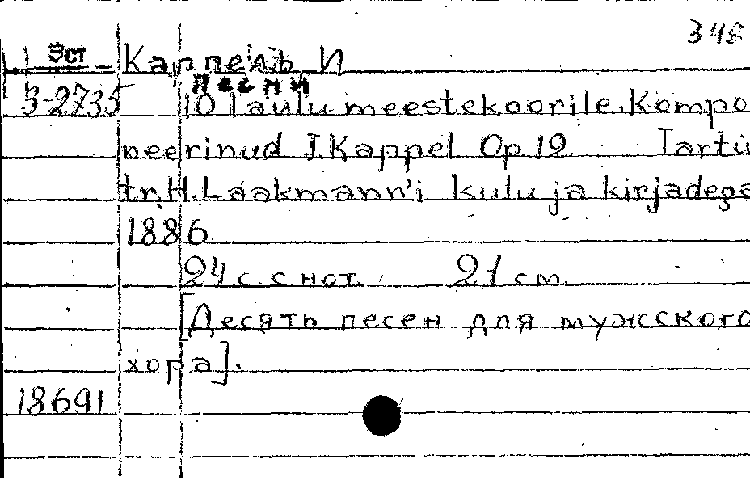 348
Эст Каппель И
Песни
3-2735 10 laulu meestekoorile. Kompo
neerinud J. Kappel Op. 19. Tartu
tr. H. Laakmann'i kulu ja kirjadega
1886
24 с. с нот. 21 см.
[Десять песен для мужского
хора].
18691